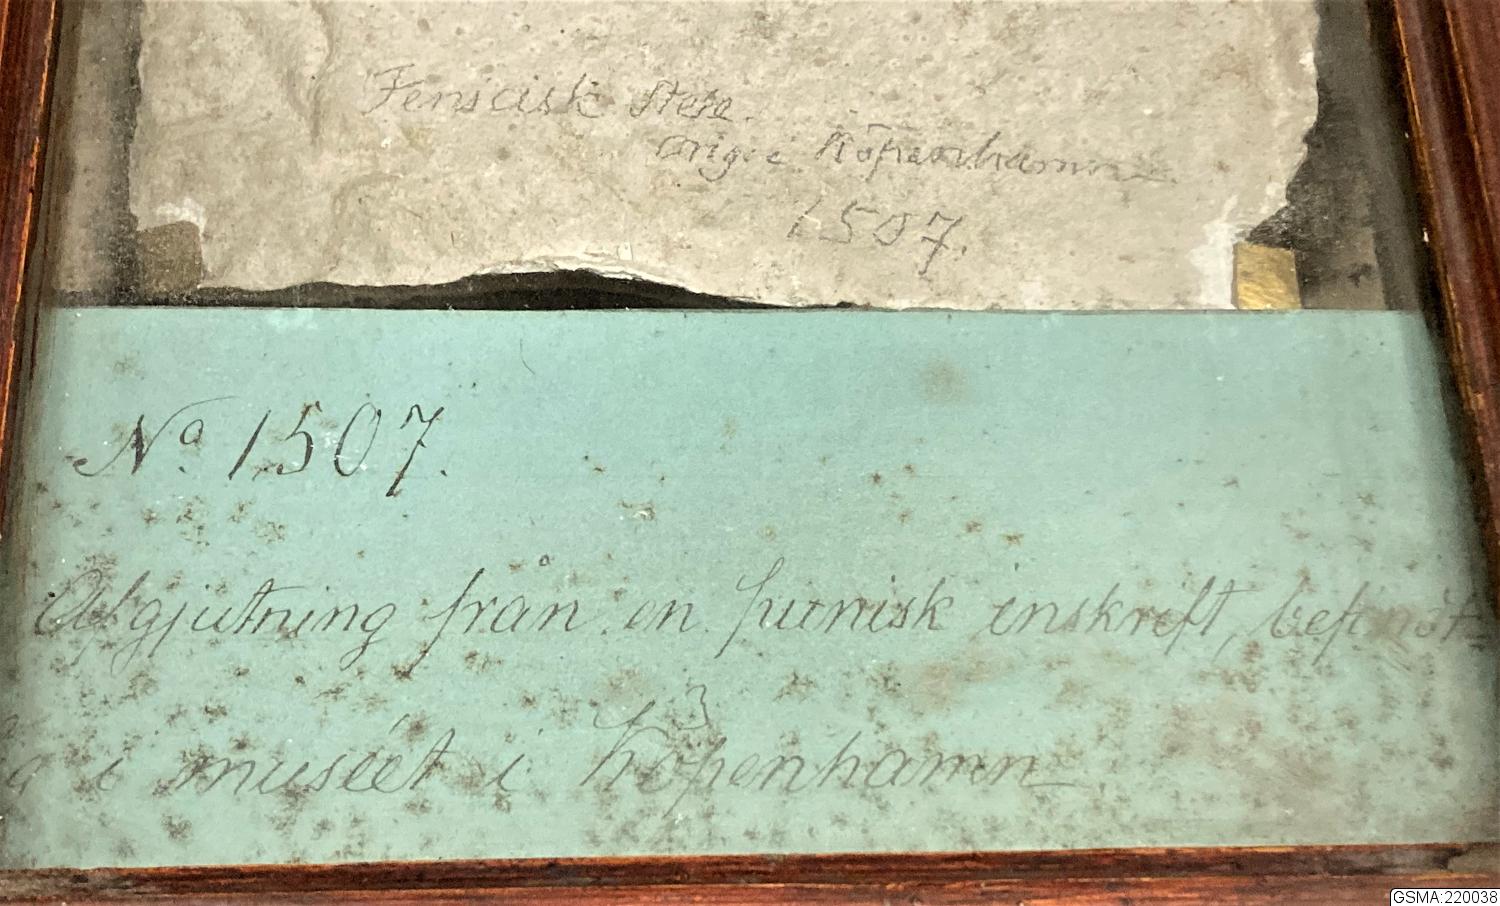 Feniscisk Stele.
Orig. i Köpenhamn
1507.
No. 1507.
Afgjutning från en punisk inskreft, befint-
a i muséet i Köpenhamn
GSMA:220038